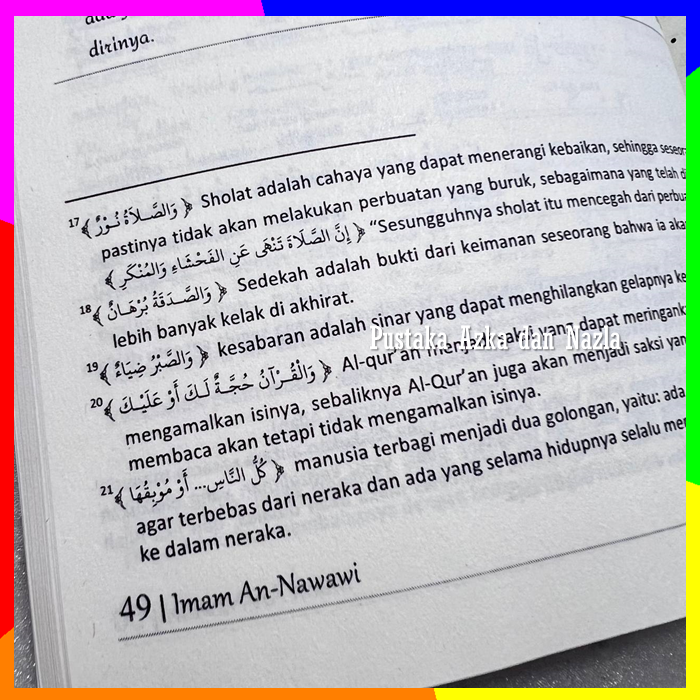 dirinya.
17 ﴿ وَالصَّلَاةُ نُوْرٌ ﴾ Sholat adalah cahaya yang dapat menerangi kebaikan, sehingga
pastinya tidak akan melakukan perbuatan yang buruk, sebagaimana yang telah
﴿ إِنَّ الصَّلَاةَ تَنْهَى عَنِ الفَحْشَاءِ وَالمُنْكَرِ ﴾ “Sesungguhnya sholat itu mencegah dari
18 ﴿ وَالصَّدَقَةُ بُرْهَانٌ ﴾ Sedekah adalah bukti dari keimanan seseorang bahwa ia
lebih banyak kelak di akhirat.
19 ﴿ وَالصَّبْرُ ضِيَاءٌ ﴾ kesabaran adalah sinar yang dapat menghilangkan gelapnya
20 ﴿ وَالْقُرْآنُ حُجَّةٌ لَكَ أَوْ عَلَيْكَ ﴾ Al-qur’an menjadi saksi yang dapat
Pustaka Azka dan Nazla
mengamalkan isinya, sebaliknya Al-Qur’an juga akan menjadi saksi
membaca akan tetapi tidak mengamalkan isinya.
21 ﴿ كُلُّ النَّاسِ... أَوْ مُوْبِقُهَا ﴾ manusia terbagi menjadi dua golongan, yaitu: ada
agar terbebas dari neraka dan ada yang selama hidupnya selalu
ke dalam neraka.
49 | Imam An-Nawawi